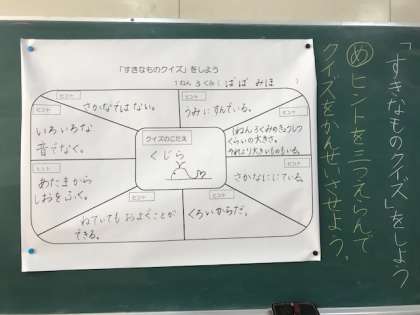 「すきなものクイズ」をしよう
めヒントを三つえらんで
クイズをかんせいさせよう。
「すきなものクイズ」をしよう
1ねん ろくみ( ばば みほ )
ヒント
さかなではない。
ヒント
うみにすんでいる。
ヒント
いろいろな
音でなく。
ヒント
1ねんろくみのきょうしつ
くらいの大きさ。
それより大きいものもいる。
クイズのこたえ
くじら
ヒント
あたまから
しおをふく。
ヒント
さかなににている。
ヒント
ねていてもおよぐことが
できる。
ヒント
くろいからだ。